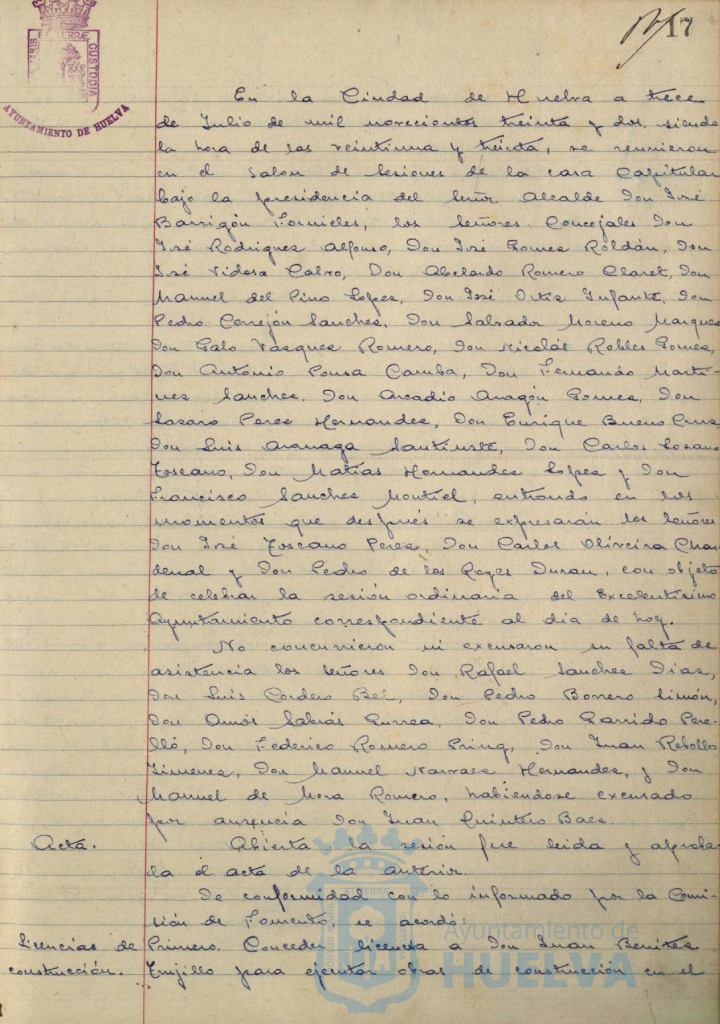 17
PORTUS MARIS ET TERRÆ CUSTODIA
AYUNTAMIENTO DE HUELVA
En la Ciudad de Huelva a trece
de Julio de mil novecientos treinta y dos, siendo
la hora de las veintiuna y treinta, se reunieron
en el Salon de Sesiones de la casa Capitular
bajo la presidencia del Señor Alcalde Don José
Barrigón Fornieles, los Señores Concejales Don
José Rodriguez Alfonso, Don José Gomez Roldán, Don
José Vidosa Calvo, Don Abelardo Romero Claret, Don
Manuel del Pino Lopez, Don José Ortiz Infante, Don
Pedro Cerrejón Sanchez, Don Salvador Moreno Marquez
Don Galo Vazquez Romero, Don Nicolás Robles Gomez,
Don Antonio Pousa Camba, Don Fernando Martí-
nez Sanchez, Don Arcadio Aragón Gomez, Don
Lazaro Perez Hernandez, Don Enrique Bueno Cruz,
Don Luis Aranaga Santiuste, Don Carlos Lozano
Toscano, Don Matías Hernandez Lopez y Don
Francisco Sanchez Montiel, entrando en los
momentos que después se expresarán los Señores
Don José Toscano Perez, Don Carlos Oliveira Char-
denal y Don Pedro de los Reyes Duran, con objeto
de celebrar la sesión ordinaria del Excelentísimo
Ayuntamiento correspondiente al dia de hoy.
No concurrieron ni excusaron su falta de
asistencia los señores Don Rafael Sanchez Diaz,
Don Luis Cordero Bel, Don Pedro Borrero Limón,
Don Amós Sabrás Gurrea, Don Pedro Garrido Pere-
lló, Don Federico Romero Pring, Don Juan Rebollo
Jimenez, Don Manuel Narvaez Hernandez, y Don
Manuel de Mora Romero, habiendose excusado
por ausencia Don Juan Quintero Baez.
Acta. Abierta la sesión fue leida y aproba-
da el acta de la anterior.
De conformidad con lo informado por la Comi-
sión de Fomento, se acordó:
Licencias de construcción. Primero. Conceder licencia a Don Juan Benitez
Trujillo para ejecutar obras de construcción en el
Ayuntamiento de
HUELVA